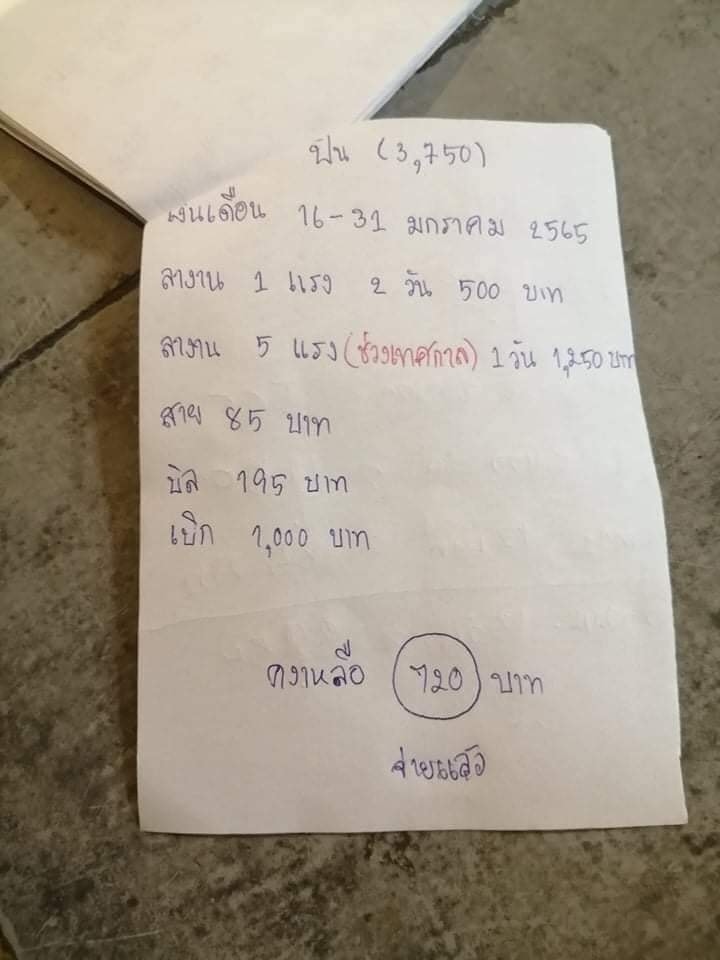 ปัน (3,750)
เงินเดือน 16-31 มกราคม 2565
ลางาน 1 แรง 2 วัน 500 บาท
ลางาน 5 แรง (ช่วงเทศกาล) 1 วัน 1,250 บาท
สาย 85 บาท
บิล 195 บาท
เบิก 1,000 บาท
คงเหลือ 720 บาท
จ่ายแล้ว